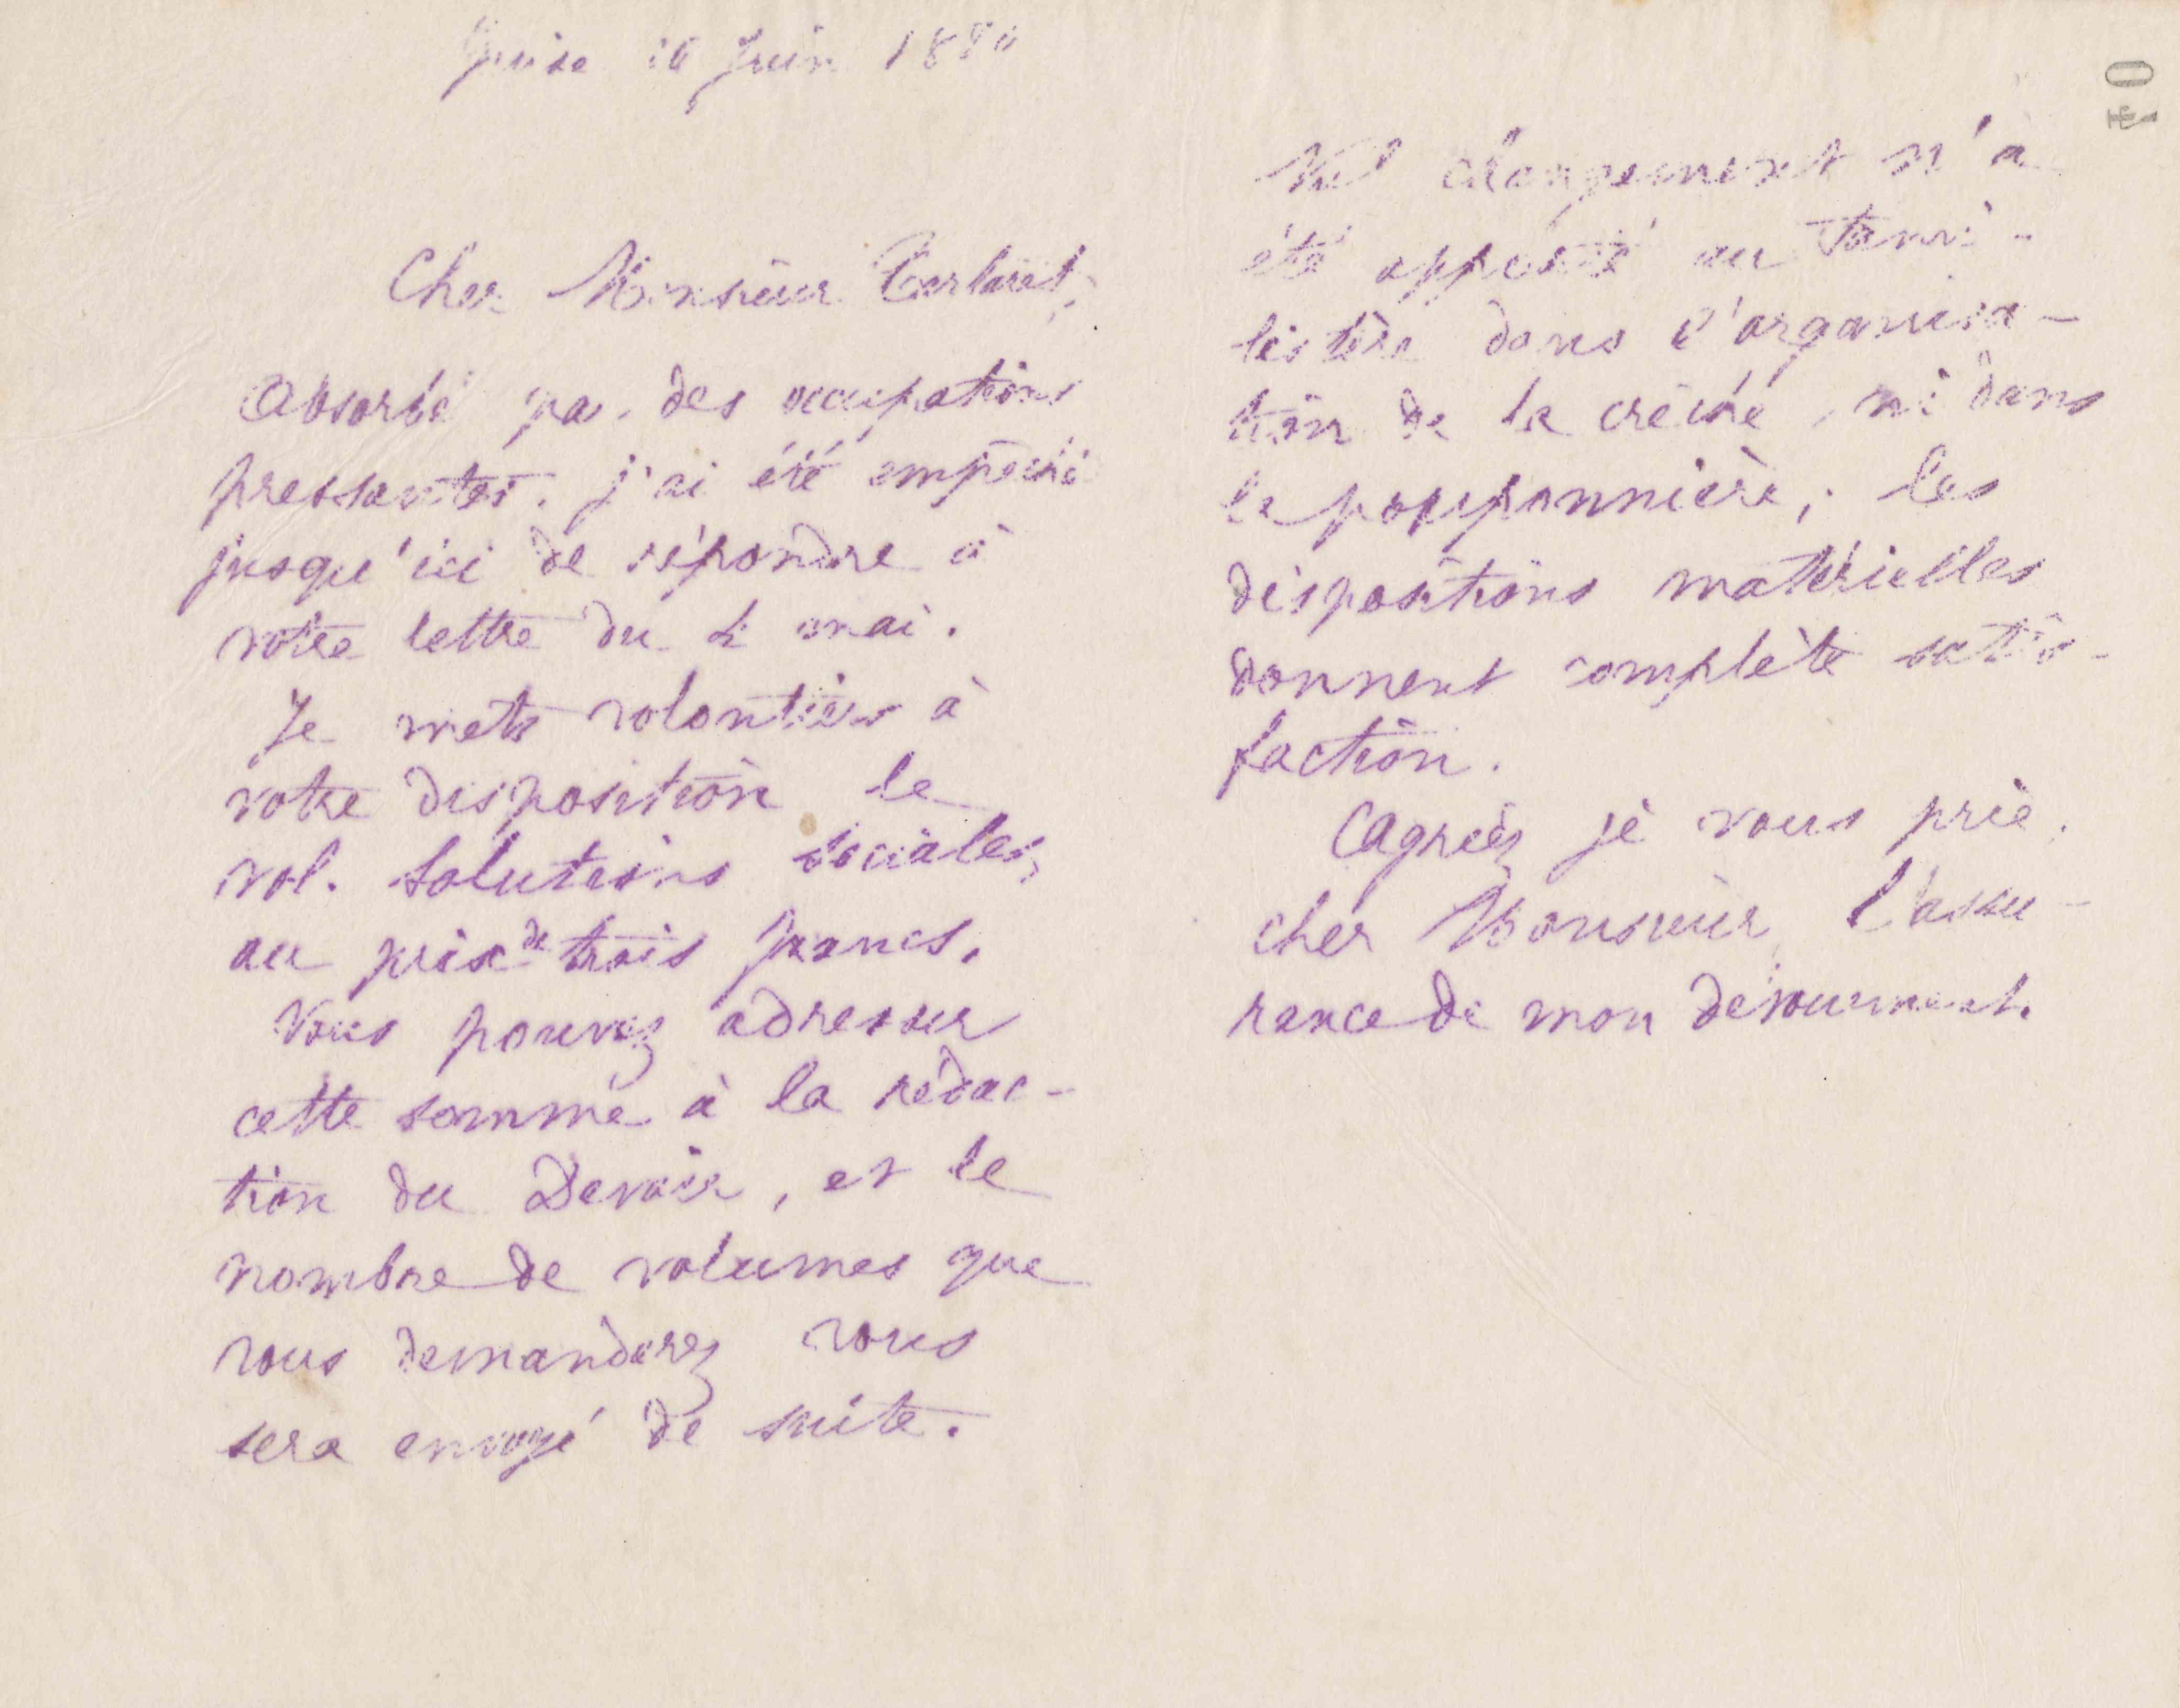 Guise 16 Juin 1880
Cher Monsieur
Absorbé par des occupations
pressantes. j'ai été empêché
jusqu'ici de répondre à
votre lettre du mai.
Je mets volontiers à
votre disposition le
vol. Solutions sociales,
au prix de trois francs.
Vous pouvez adresser
cette somme à la rédac-
tion du Devoir, et le
nombre de volumes que
vous demanderez vous
sera envoyé de suite.
40
Nul changement n'a
été apporté au Fami-
listère dans l'organisa-
tion de la crèche, ni dans
la pouponnière; les
dispositions matérielles
donnent complète satis-
faction.
Agréez je vous prie,
cher Monsieur, l'assu-
rance de mon dévouement.